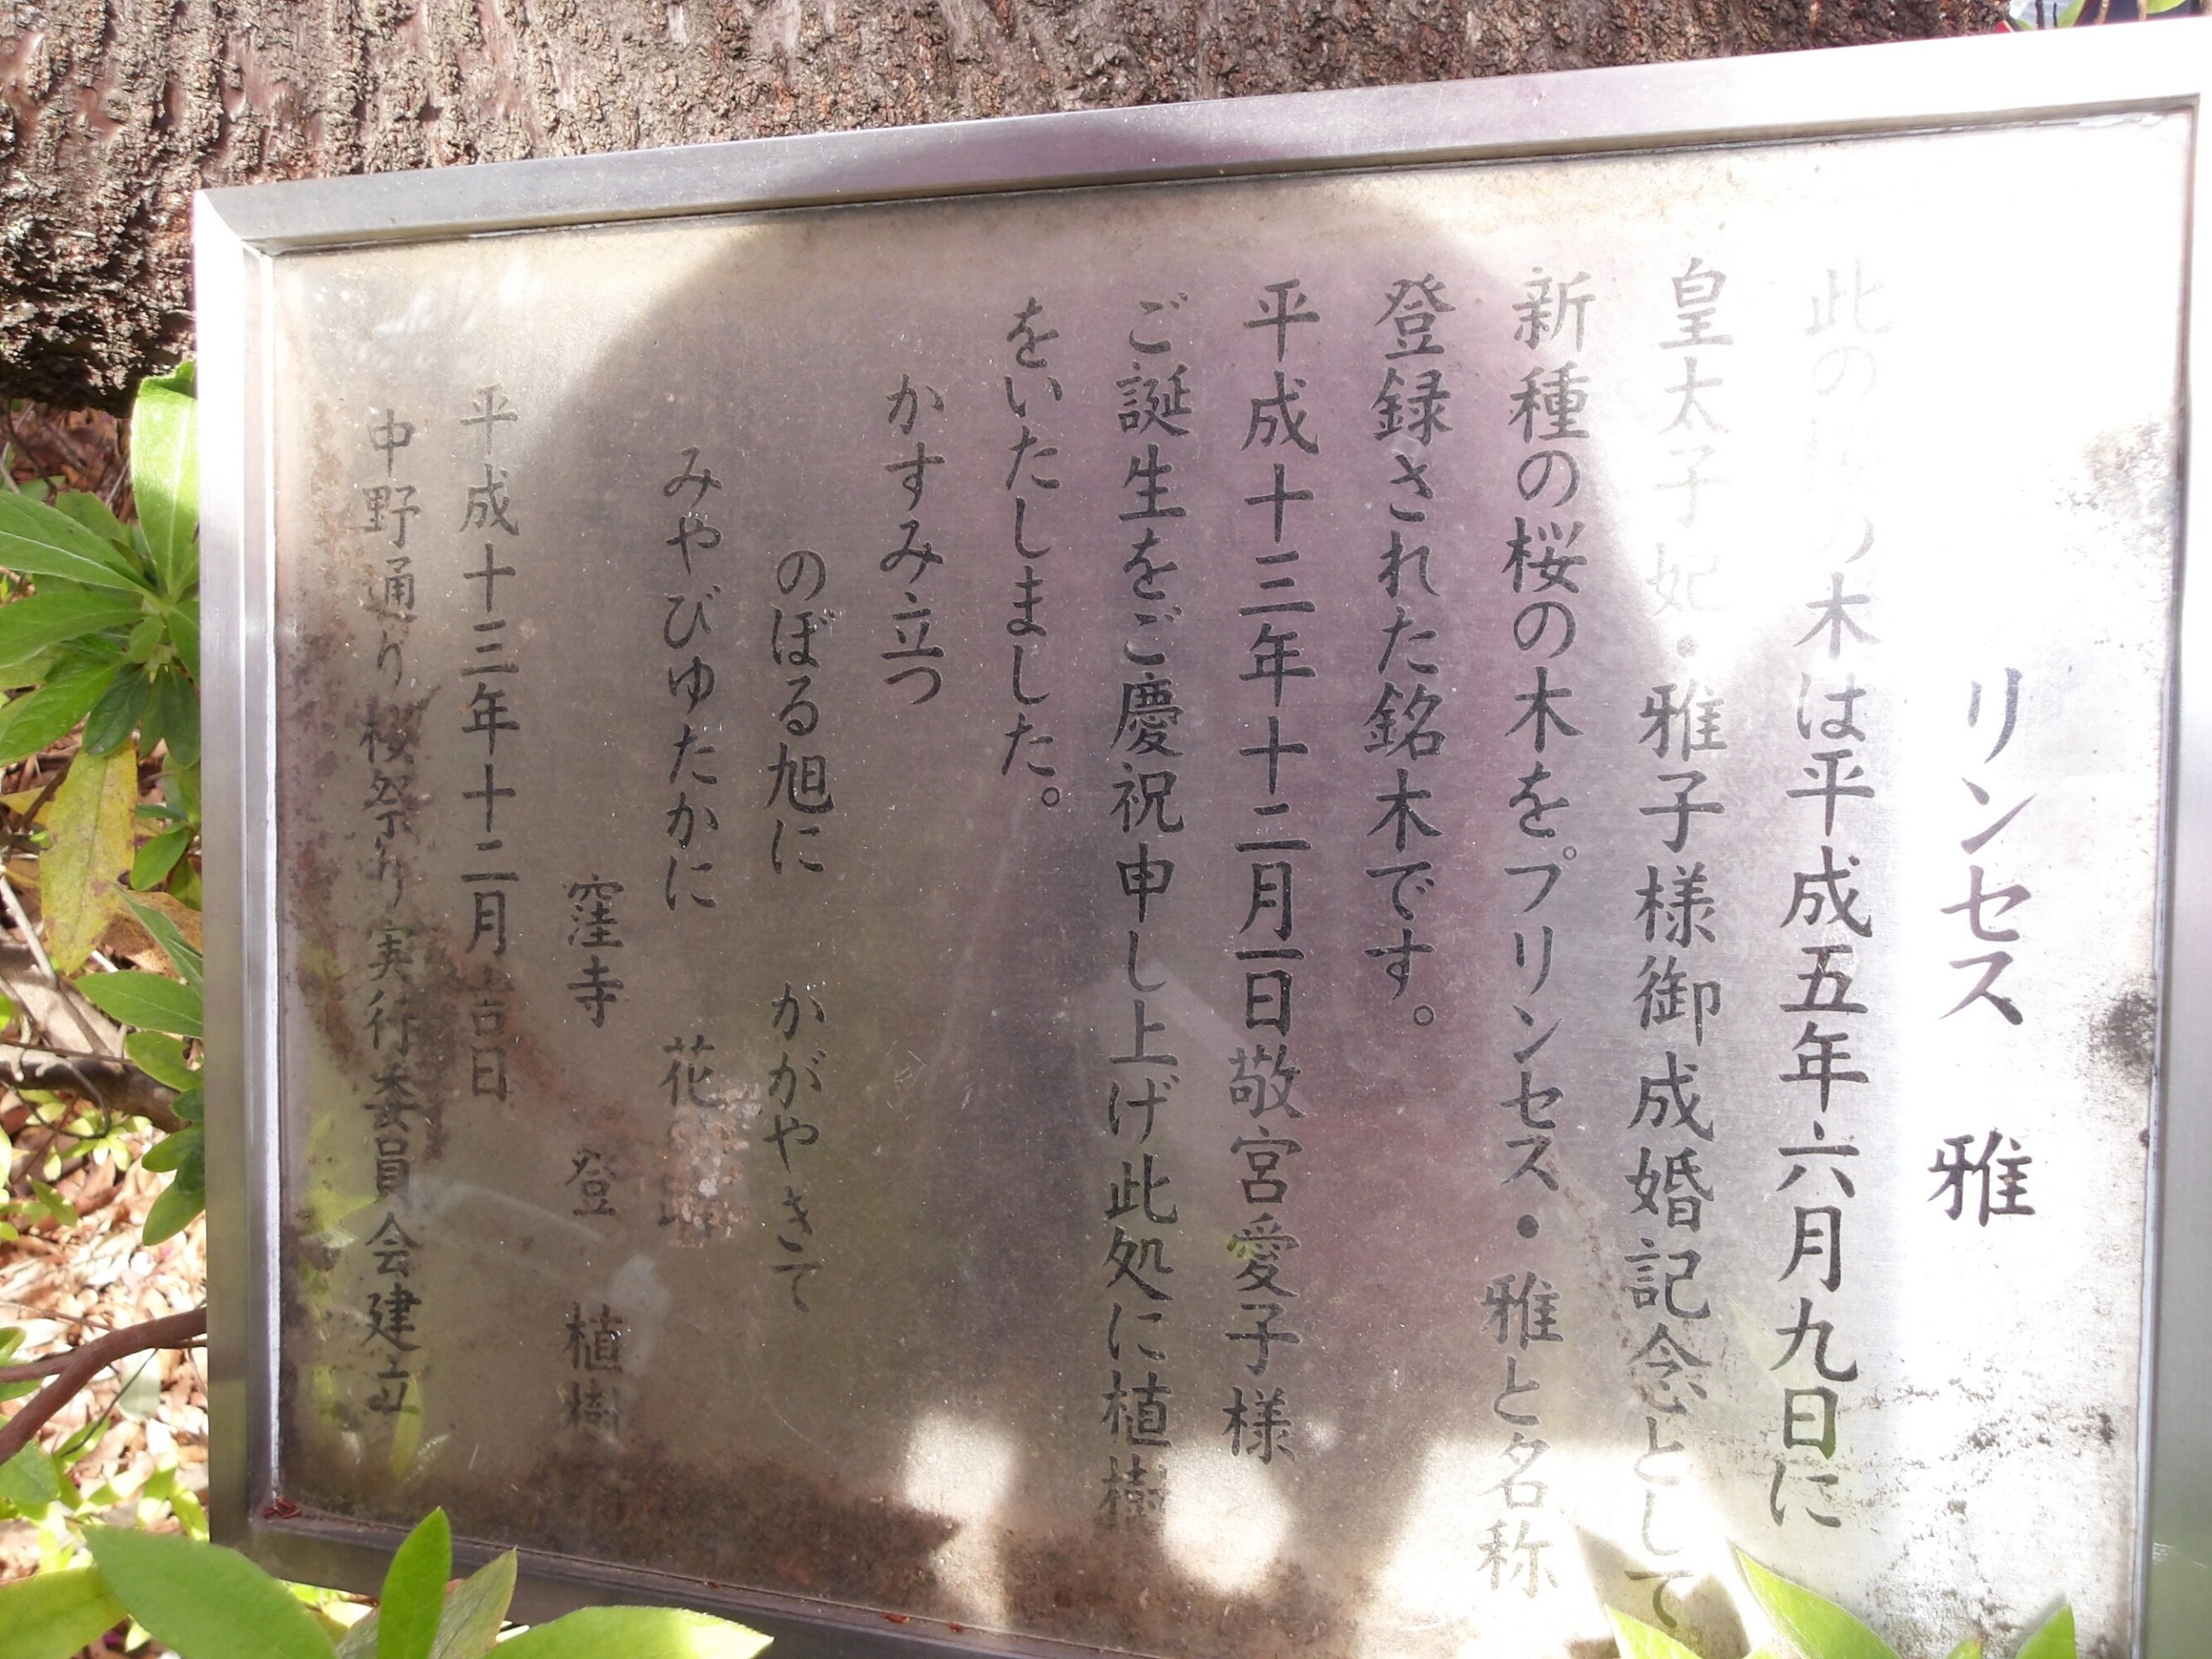 リンセス 雅
此の の木は平成五年六月九日に
皇太子妃・雅子様御成婚記念として
新種の桜の木をプリンセス・雅と名称
登録された銘木です。
平成十三年十二月一日敬宮愛子様
ご誕生をご慶祝申し上げ此処に植樹
をいたしました。
かすみ立つ
のぼる旭に かがやきて
みやびゆたかに 花
窪寺 登 植樹
平成十三年十二月吉日
中野通り桜祭り実行委員会建立